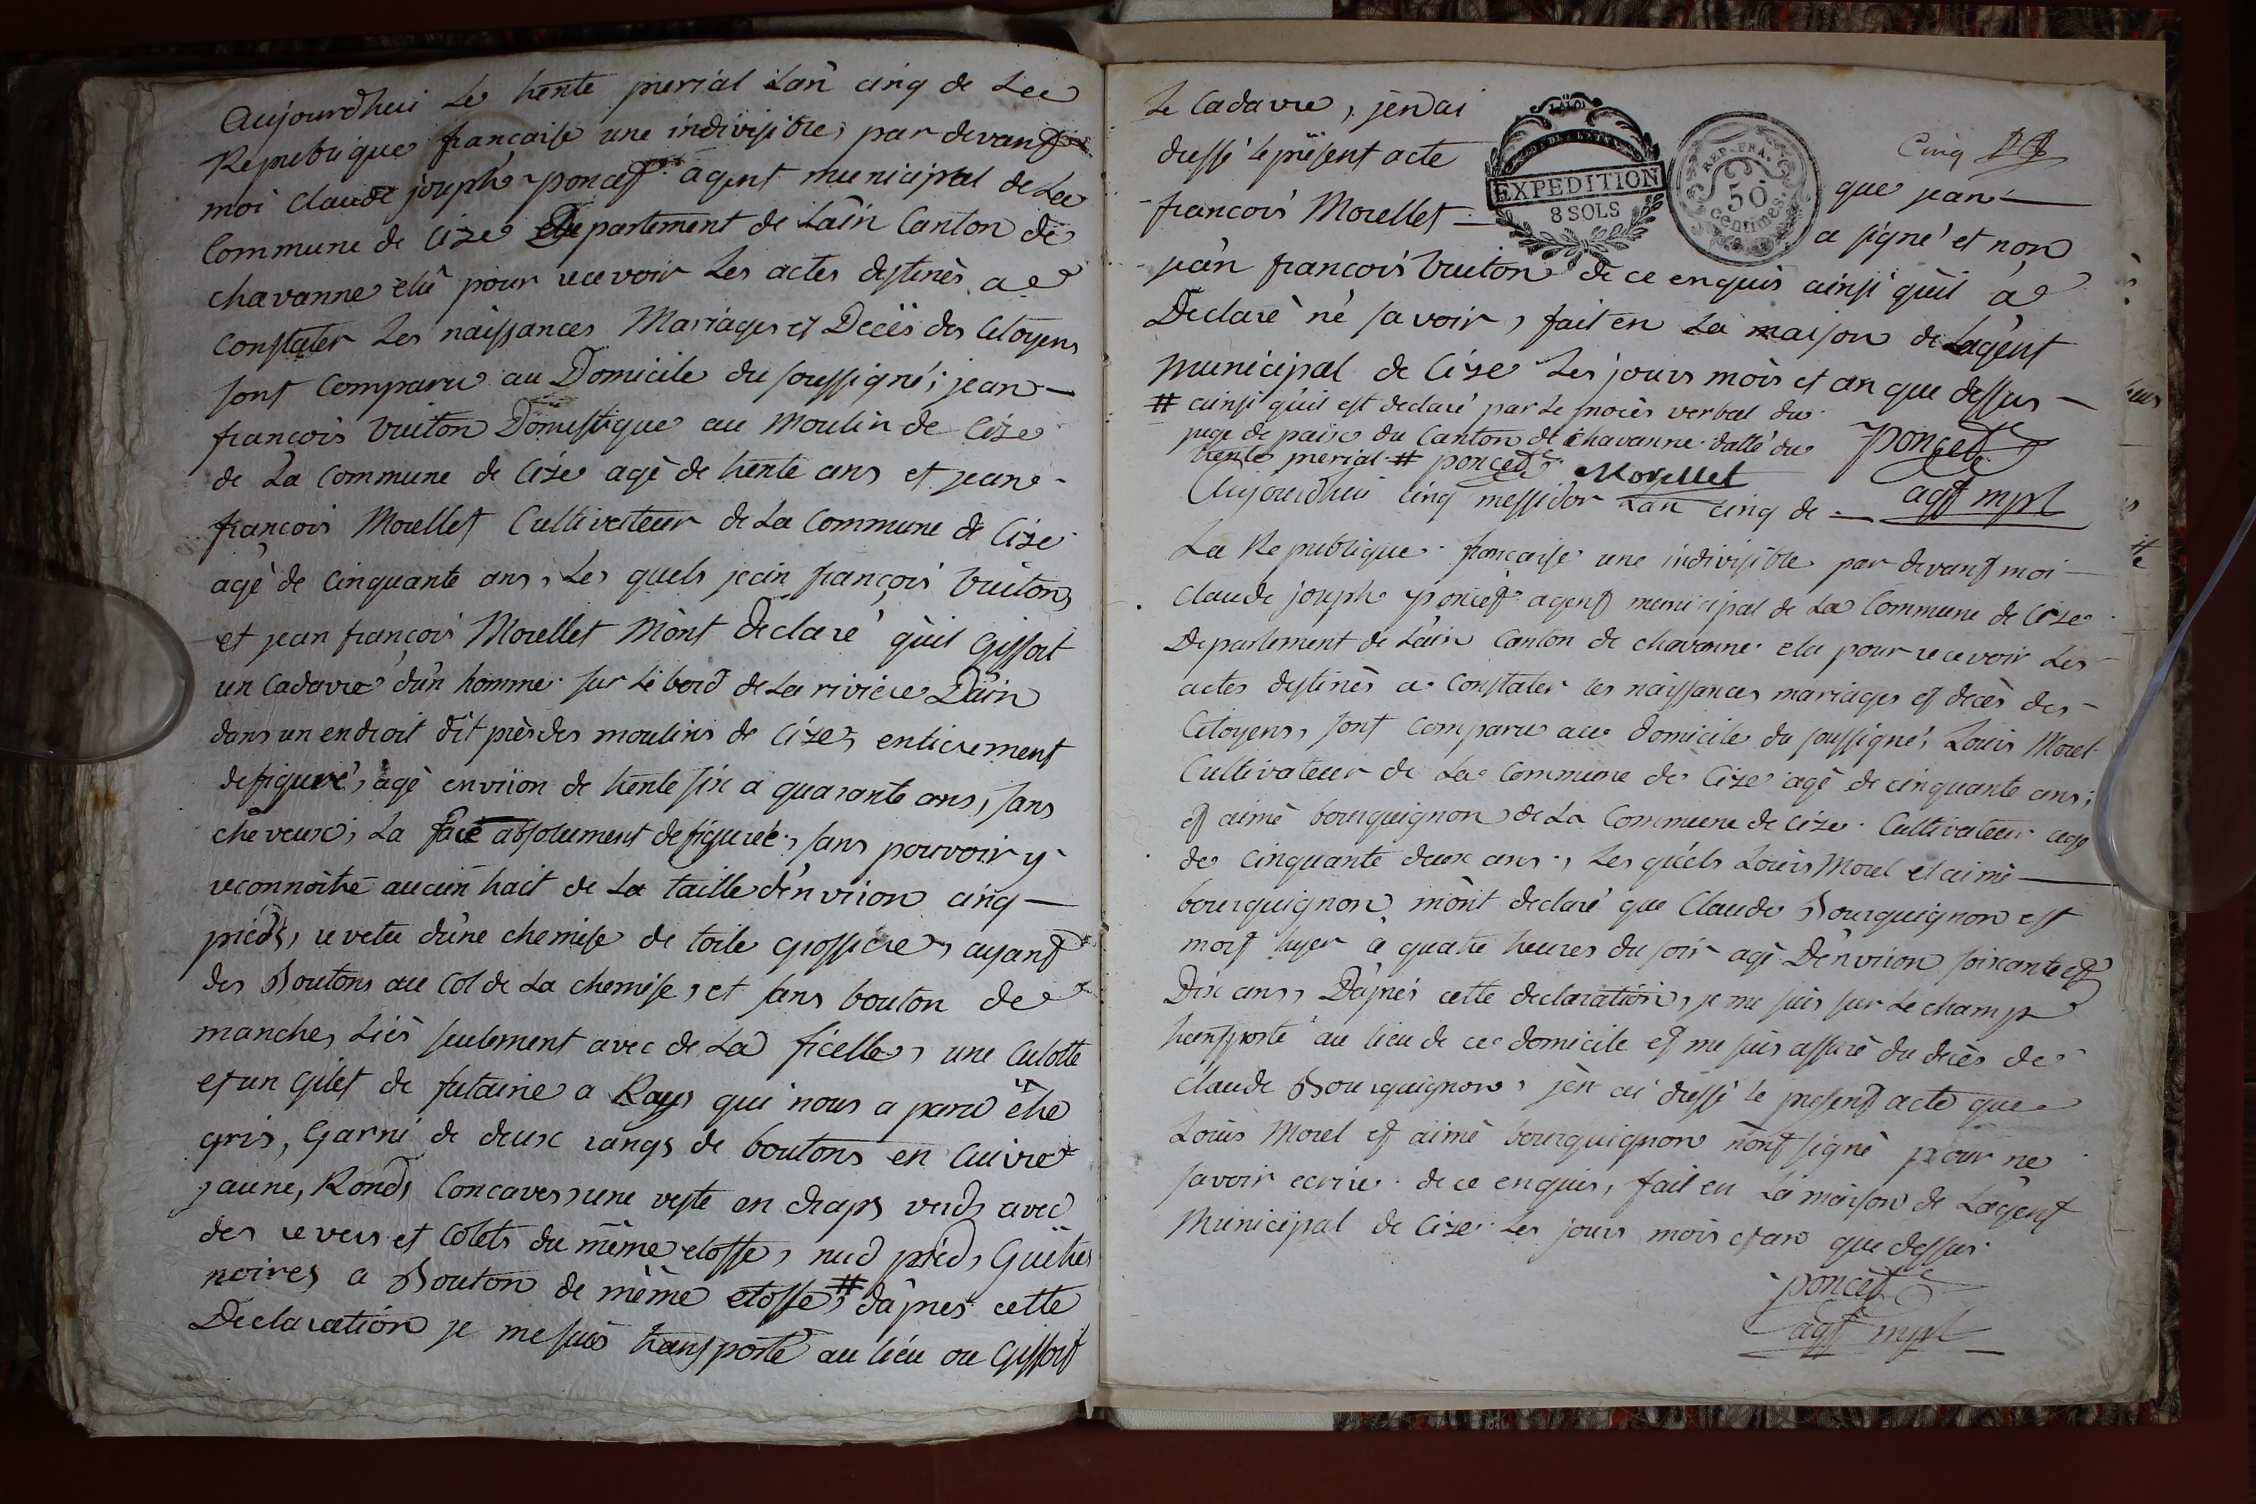 Aujourdhui Le trente prerial Lan cinq de Lae
Republique francaise une indivisible, par devant
moi Claude joseph poncet agent municipal de La
Commune de Cize Departement de Lain Canton de
chavanne elû pour recevoir Les actes destinès a
constater Les naissances Mariages et Decès des Citoyens
sont Comparu au Domicile du soussigné; jean
francois Vuiton Domestique au Moulin de Cize
de La commune de Cize agè de trente ans et jean
francois Morellet Cultivateur de La Commune de Cize
agè de Cinquante ans, Les quels jean françois Vuiton
et jean françois Morellet Mònt declaré qùil Gissoit
un Cadavre dùn homme sur Lè bord de La riviere Dàin
dans un endroit dit près des moulins de Cize, entierement
deffiguré, agè environ de trente six a quarante ans, sans
cheveux, La face absolument deffigureé, sans pouvoir y
reconnoitre aucun trait de La taille dènviron cinq
pieds, revetu dùne chemise de toile grossiere, ayant
des Boutons au Col de La chemise, et sans bouton de
manches, Liès seulement avec de La ficelle, une Culotte
et un Gilet de futaine a Rays qui nous a paru être
gris, Garni de deux rangs de boutons en Cuivre
jaune, Ronds Concaves, une veste en draps verds avec
des revers et Colets du même etoffe, nud pied, Guêtres
noires a Bouton de mème etoffe,# dàpres cette
Declaration je me suis transporté au lieu ou Gissoit
Le Cadavre, jenai
dressé le présent acte
EXPEDITION
8 SOLS
REP. FRA.
50
centimes.
Cinq
que jean
francois Morellet
a signé et non
jean francois Vuiton de ce enquis ainsi qùil à
Declarè nè savoir, fait en La maison de Làgent
Municipal de Cize Les jours mois et an que dessus
# ainsi qùil est declaré par Le procès verbal du
juge de paix du Canton de Chavanne dattè du
trente prerial # poncet Morellet
poncet
agt mpl
Aujourdhui Cinq messidor Lan Cinq de
La Republique francaise une indivisible par devant moi
Claude joseph poncet agent municipal de La Commune de Cize
Departement de Làin Canton de chavanne elu pour recevoir Les
actes destinès a constater les naissances mariages et decès des
Citoyens, sont comparu au domicile du soussigné, Louis Morel
Cultivateur de La Commune de Cize agè de cinquante ans;
et aimè bourguignon de La Commune de Cize Cultivateur age
de cinquante deux ans, Les quèls Louis Morel et aimè
bourguignon mònt declaré que Claude Bourguignon est
mort hyer a quatre heures du soir agè Dènviron soixante et
Dix ans, Dàpres cette declaration, je me suis sur Le champ
transporté au lieu de ce domicile et me suis assurè du decès de
Claude Bourguignon, jèn ai dressé le present acte que
Louis Morel et aimè bourguignon nònt signè pour ne
savoir ecrire de ce enquis, fait en La maison de Làgent
Municipal de Cize Les jours mois et an que dessus
poncet
agt mpl